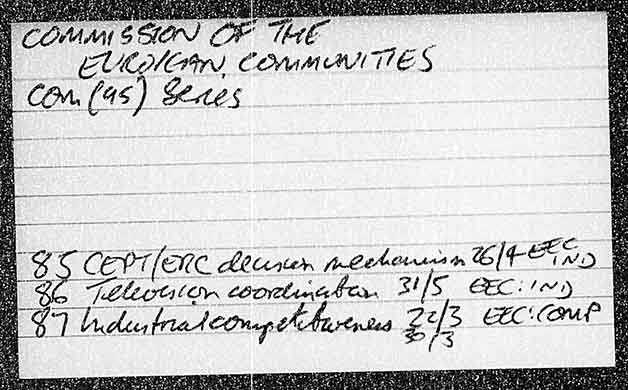 COMMISSION OF THE
EUROPEAN COMMUNITIES
COM (95) Series
85 CEPT/ERC decision mechanism 26/4 EEC IND
86 Television coordination 31/5 EEC: IND
87 Industrial competitiveness 22/3 EEC: COMP
30/3